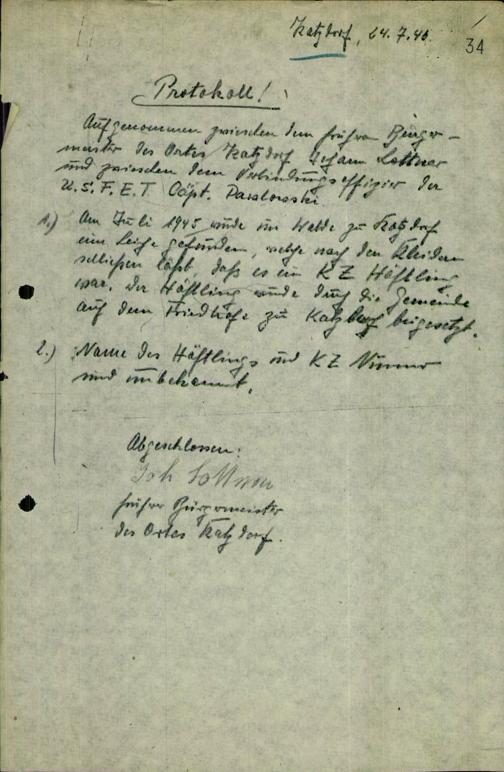 Katzdorf, 24.7.46.
34
Protokoll!
Aufgenommen zwischen dem frühren Bürger-
meister des Ortes Katzdorf Johann Lottner
und zwischen dem Verbindungsoffizier der
U.S.F.E.T. Cäpt. Pawlowski.
1.) Am Juli 1945 wurde im Walde zu Katzdorf
eine Leiche gefunden, welche nach den Kleidern
schließen läßt, daß es ein KZ Häftling
war. Der Häftling wurde durch die Gemeinde
auf dem Friedhofe zu Katzdorf beigesetzt.
2.) Name des Häftlings und KZ Nummer
sind unbekannt.
Abgeschlossen:
Joh Lottner
frührer Bürgermeister
des Ortes Katzdorf.